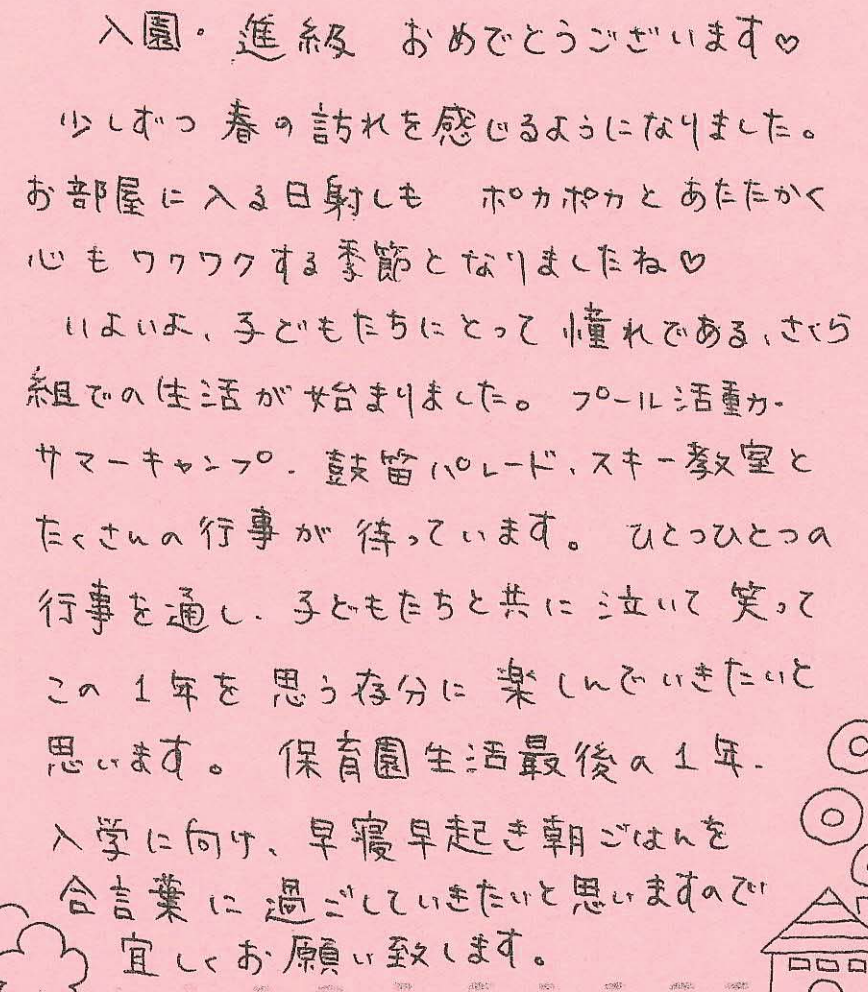 入園・進級 おめでとうございます♡
少しずつ 春の訪れを感じるようになりました。
お部屋に入る日射しも ポカポカとあたたかく
心もワクワクする季節となりましたね♡
いよいよ、子どもたちにとって憧れである、さくら
組での生活が始まりました。プール活動・
サマーキャンプ・鼓笛パレード、スキー教室と
たくさんの行事が待っています。ひとつひとつの
行事を通し、子どもたちと共に泣いて笑って
この1年を思う存分に楽しんでいきたいと
思います。保育園生活最後の1年、
入学に向け、早寝早起き朝ごはんを
合言葉に過ごしていきたいと思いますので
宜しくお願い致します。